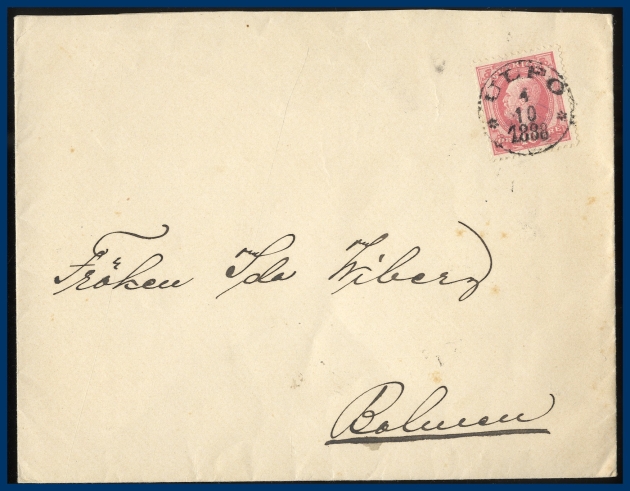 ULFÖ
4
10
1888
Fröken Ida Wiberg
Bolmen